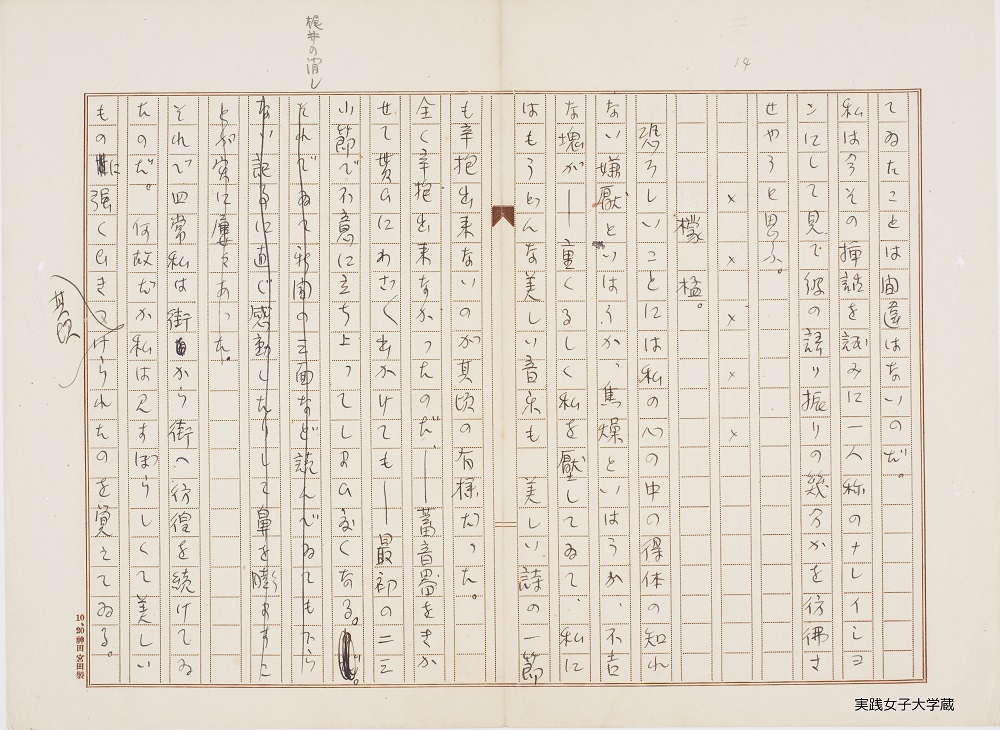 14
てゐたことは間違はないのだ。
私は今その挿話を試みに一人称のナレイショ
ンにして見て彼の語り振りの幾分かを彷彿さ
せやうと思ふ。
× × × × ×
檬檸。
恐ろしいことには私の心の中の得体の知れ
ない嫌厭といはうか、焦燥といはうか、不吉
な塊が――重くるしく私を壓してゐて、私に
はもうどんな美しい音楽も 美しい詩の一節
も辛抱出来ないのが其頃の有様だった。
全く辛抱出来なかったのだ。――蓄音器をきか
せて貰ひにわざわざ出かけても――最初の二三
小節で不意に立ち上ってしまひ度くなる。
それでゐて新聞の三面など読んでゐてもつら
ない記事に直ぐ感動したりして鼻を膨ますこ
とが実に屢々あった。
それで四常私は街から街へ彷徨を続けてゐ
たのだ。何故だか私は見すぼらしくて美しい
ものに強くひきつけられたのを覚えてゐる。
其頃
梶井の消し
10,20神田宮田製
実践女子大学蔵